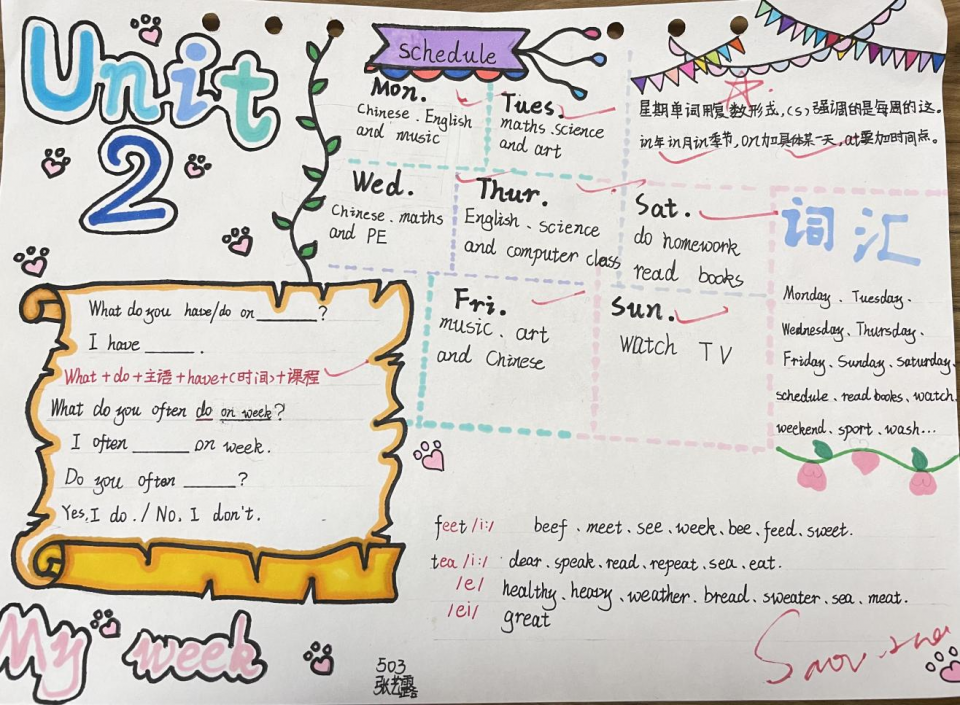 Unit
2
schedule
Mon.
Chinese . English
and music
Tues.
maths . science
and art
星期单词用复数形式,(s)强调的是每周的这。
in年in月in季节,on加具体某一天,at要加时间点。
Wed.
Chinese . maths
and PE
Thur.
English 、 science
and computer class
Sat.
do homework
read books
Fri.
music 、 art
and Chinese
Sun.
watch TV
词 汇
Monday 、 Tuesday .
Wednesday 、 Thursday .
Friday 、 Sunday 、 saturday.
schedule 、 read books 、 watch.
weekend 、 sport 、 wash...
What do you have/do on ______ ?
I have _____ .
What + do + 主语 + have + (时间) + 课程
What do you often do on week?
I often ______ on week.
Do you often _____ ?
Yes, I do. / No, I don't.
feet /i:/ beef 、 meet 、 see 、 week 、 bee 、 feed 、 sweet.
tea /i:/ dear 、 speak 、 read 、 repeat 、 sea 、 eat .
/e/ healthy 、 heavy 、 weather 、 bread 、 sweater 、 sea 、 meat .
/ei/ great
My week
503